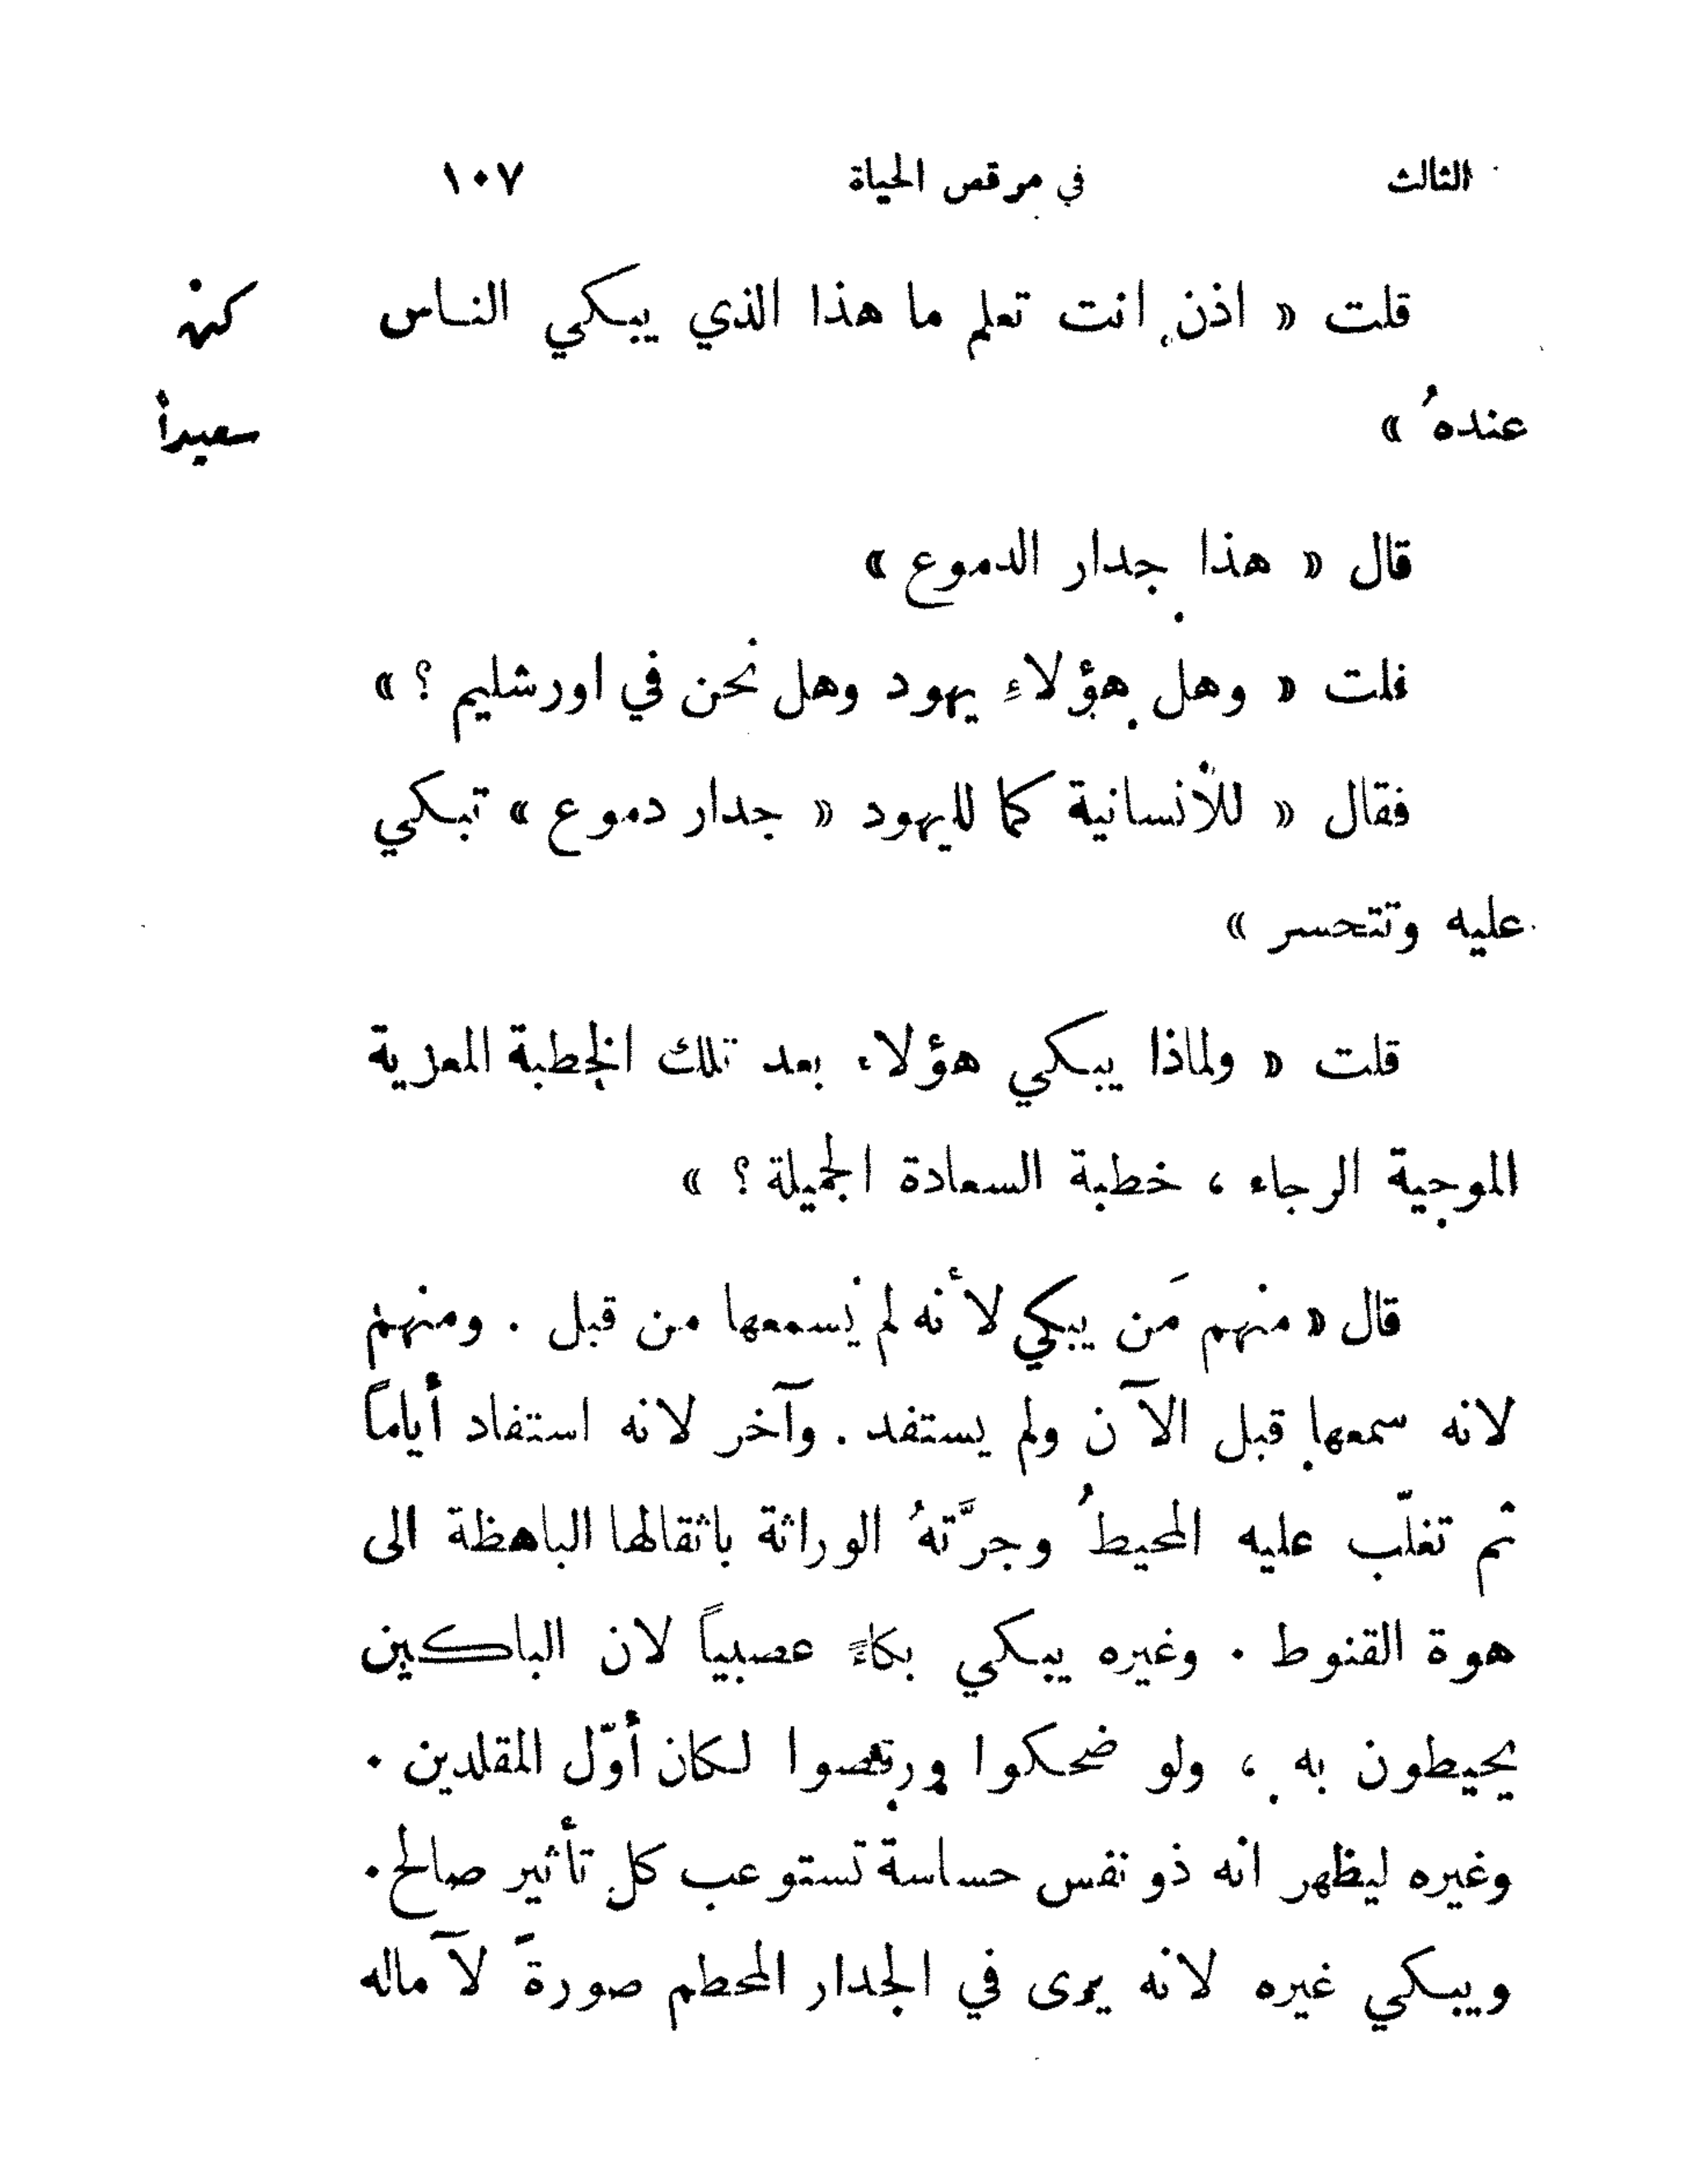 الثالث في مرقص الحياة ١٠٧
قلت « اذن انت تعلم ما هذا الذي يبكي الناس
كن
عندهُ »
سعيداً
قال « هذا جدار الدموع »
قلت « وهل هؤلاءِ يهود وهل نحن في اورشليم ؟ »
فقال « للأنسانية كما لليهود « جدار دموع » تبكي
عليه وتتحسر »
قلت « ولماذا يبكي هؤلاء بعد تلك الخطبة المعزية
الموحية الرجاء ، خطبة السعادة الجميلة ؟ »
قال « منهم مَن يبكي لأنه لم يسمعها من قبل . ومنهم
لانه سمعها قبل الآن ولم يستفد . وآخر لانه استفاد أياماً
ثم تغلّب عليه المحيطُ وجرَّتهُ الوراثة باثقالها الباهظة الى
هوة القنوط . وغيره يبكي بكاءً عصبياً لان الباكين
يحيطون به ، ولو ضحكوا ورقصوا لكان أوّل المقلدين .
وغيره ليظهر انه ذو نفس حساسة تستوعب كل تأثير صالح .
ويبكي غيره لانه يرى في الجدار المحطم صورةً لآماله